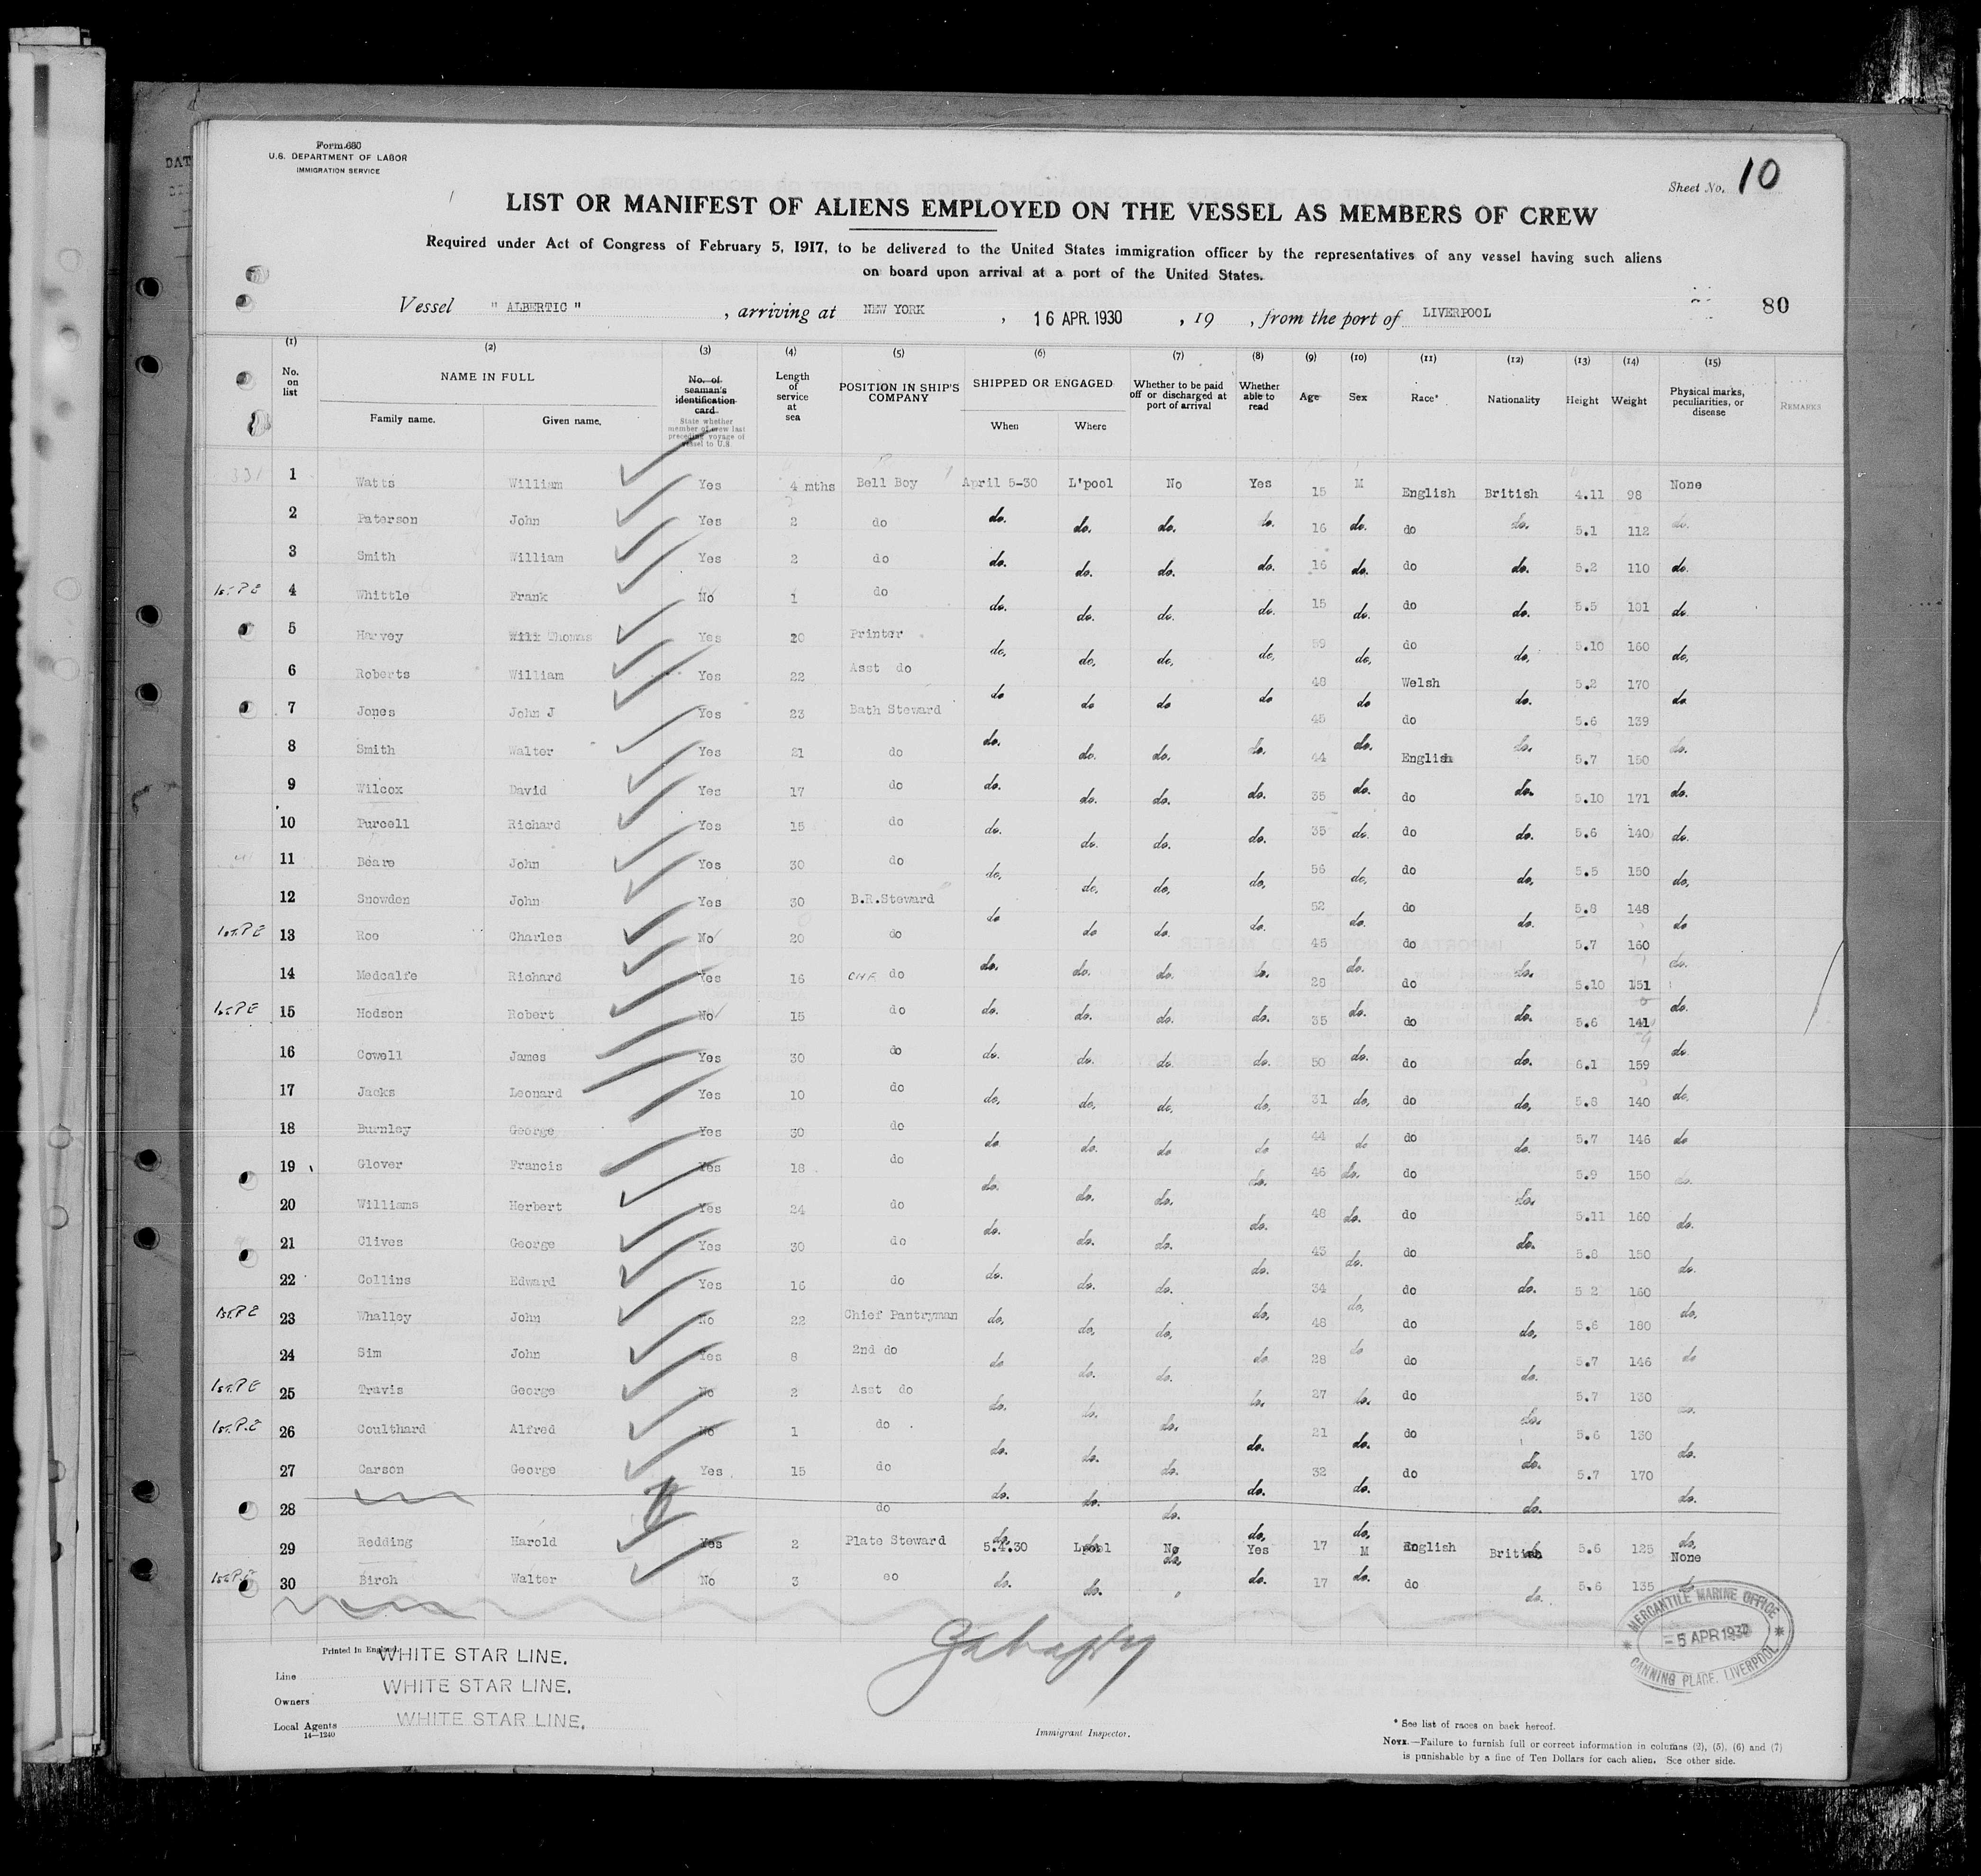 Form 680
U.S. DEPARTMENT OF LABOR
IMMIGRATION SERVICE
Sheet No. 10
LIST OR MANIFEST OF ALIENS EMPLOYED ON THE VESSEL AS MEMBERS OF CREW
Required under Act of Congress of February 5, 1917, to be delivered to the United States immigration officer by the representatives of any vessel having such aliens
on board upon arrival at a port of the United States.
80
Vessel " ALBERTIC " , arriving at NEW YORK , 16 APR. 1930 , 19 , from the port of LIVERPOOL
(1) (2) (3) (4) (5) (6) (7) (8) (9) (10) (11) (12) (13) (14) (15)
No. on list NAME IN FULL Family name. Given name. No. of seaman's identification card State whether member of crew last preceding voyage of vessel to U.S Length of service at sea POSITION IN SHIP'S COMPANY SHIPPED OR ENGAGED When Where Whether to be paid off or discharged at port of arrival Whether able to read Age Sex Race* Nationality Height Weight Physical marks, peculiarities, or disease REMARKS
1 Watts William Yes 4 mths Bell Boy April 5-30 L'pool No Yes 15 M English British 4.11 98 None
2 Paterson John Yes 2 do do. do. do. do. 16 do. do do. 5.1 112 do.
3 Smith William Yes 2 do do. do. do. do. 16 do. do do. 5.2 110 do.
1st P E 4 Whittle Frank No 1 do do. do. do. do. 15 do. do do. 5.5 101 do.
5 Harvey Will Thomas Yes 20 Printer do. do. do. do. 59 do. do do. 5.10 160 do.
6 Roberts William Yes 22 Asst do do do do do 48 do Welsh do. 5.2 170 do
7 Jones John J Yes 23 Bath Steward do. do. do. do. 45 do. do do. 5.6 139 do.
8 Smith Walter Yes 21 do do. do. do. do. 44 do. English do. 5.7 150 do.
9 Wilcox David Yes 17 do do. do. do. do. 35 do. do do. 5.10 171 do.
10 Purcell Richard Yes 15 do do. do. do. do. 35 do. do do. 5.6 140 do.
11 Beare John Yes 30 do do. do. do. do. 56 do. do do. 5.5 150 do.
12 Snowden John Yes 30 B.R.Steward do do do. do. 52 do. do do. 5.8 148 do
1st. P E 13 Roe Charles No 20 do do. do. do. do. 45 do. do do. 5.7 160 do.
14 Medcalfe Richard Yes 16 do do. do. do. do. 28 do. do do. 5.10 151 do.
1st P E 15 Hodson Robert No 15 do do. do. do. do. 35 do. do do. 5.6 141 do.
16 Cowell James Yes 30 do do. do. do. do. 50 do. do do. 6.1 159 do.
17 Jacks Leonard Yes 10 do do. do. do. do. 31 do. do do. 5.8 140 do.
18 Burnley George Yes 30 do do do. do do 44 do do do. 5.7 146 do
19 Glover Francis Yes 18 do do. do. do. do. 46 do. do do. 5.9 150 do.
20 Williams Herbert Yes 24 do do. do. do. do. 48 do. do do. 5.11 160 do.
21 Clives George Yes 30 do do. do. do. do. 43 do. do do. 5.8 150 do.
22 Collins Edward Yes 16 do do. do. do. do. 34 do. do do. 5 2 160 do.
1st. P E 23 Whalley John No 22 Chief Pantryman do. do. do. do. 48 do. do do. 5.6 180 do.
24 Sim John Yes 8 2nd do do do. do. do 28 do do do. 5.7 146 do
1st. P E 25 Travis George No 2 Asst do do. do. do. do. 27 do. do do. 5.7 130 do.
1st. P.E 26 Coulthard Alfred No 1 do do. do. do. do. 21 do. do do. 5.6 130 do.
27 Carson George Yes 15 do do. do. do. do. 32 do. do do. 5.7 170 do.
28 do
29 Redding Harold Yes 2 Plate Steward 5.4.30 Lpool No Yes 17 M English British 5.6 125 None
1st P.E 30 Birch Walter No 3 do do. do. do. 17 do. do do. 5.6 135 do
Printed in England
Line WHITE STAR LINE.
Owners WHITE STAR LINE.
Local Agents WHITE STAR LINE.
14—1240
Immigrant Inspector.
MERCANTILE MARINE OFFICE
- 5 APR 1930
CANNING PLACE. LIVERPOOL
* See list of races on back hereof.
NOTE.—Failure to furnish full or correct information in columns (2), (5), (6) and (7)
is punishable by a fine of Ten Dollars for each alien. See other side.